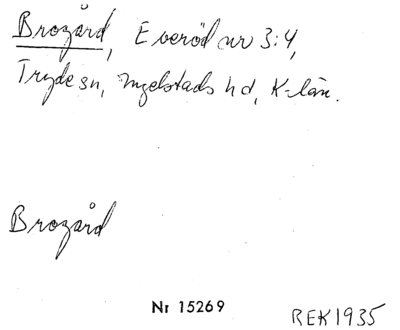 Brogård, Everöd nr 3:4,
Tryde sn, Ingelstads hd, K-län.
Brogård
Nr 15269
REK1935